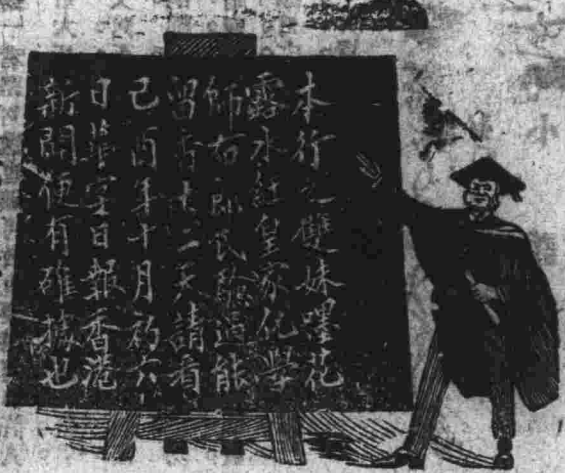 本行之雙妹嚜花
露水經皇家化學
師郎驗過能
留香十二天請看
己酉年十月初六
日華字日報香港
新聞便有確據也